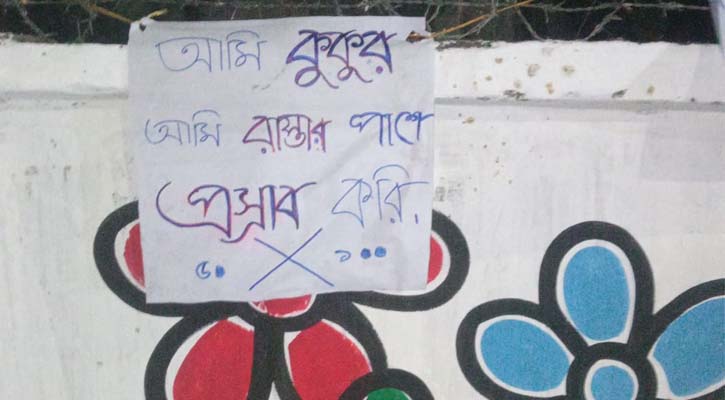 আমি কুকুর
আমি রাস্তার পাশে
প্রস্রাব করি.
৫০ X ১০০